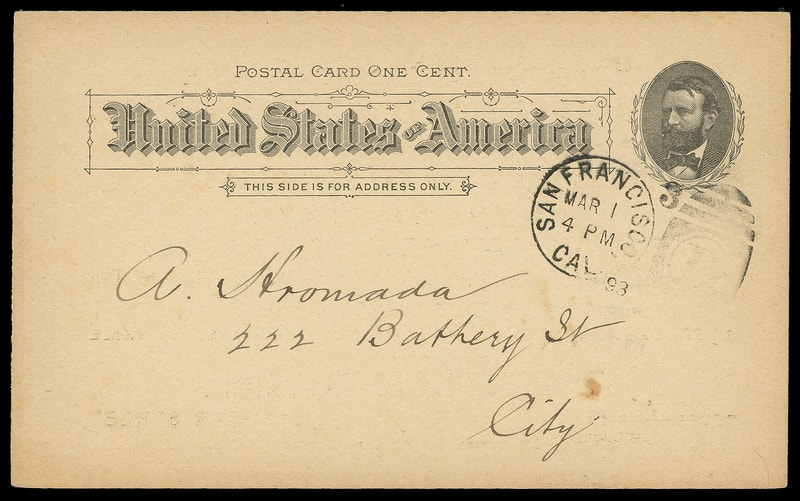 POSTAL CARD ONE CENT.
United States of America
THIS SIDE IS FOR ADDRESS ONLY.
SAN FRANCISCO
MAR 1
4 PM
CAL. 93
A. Hromada
222 Battery St
City